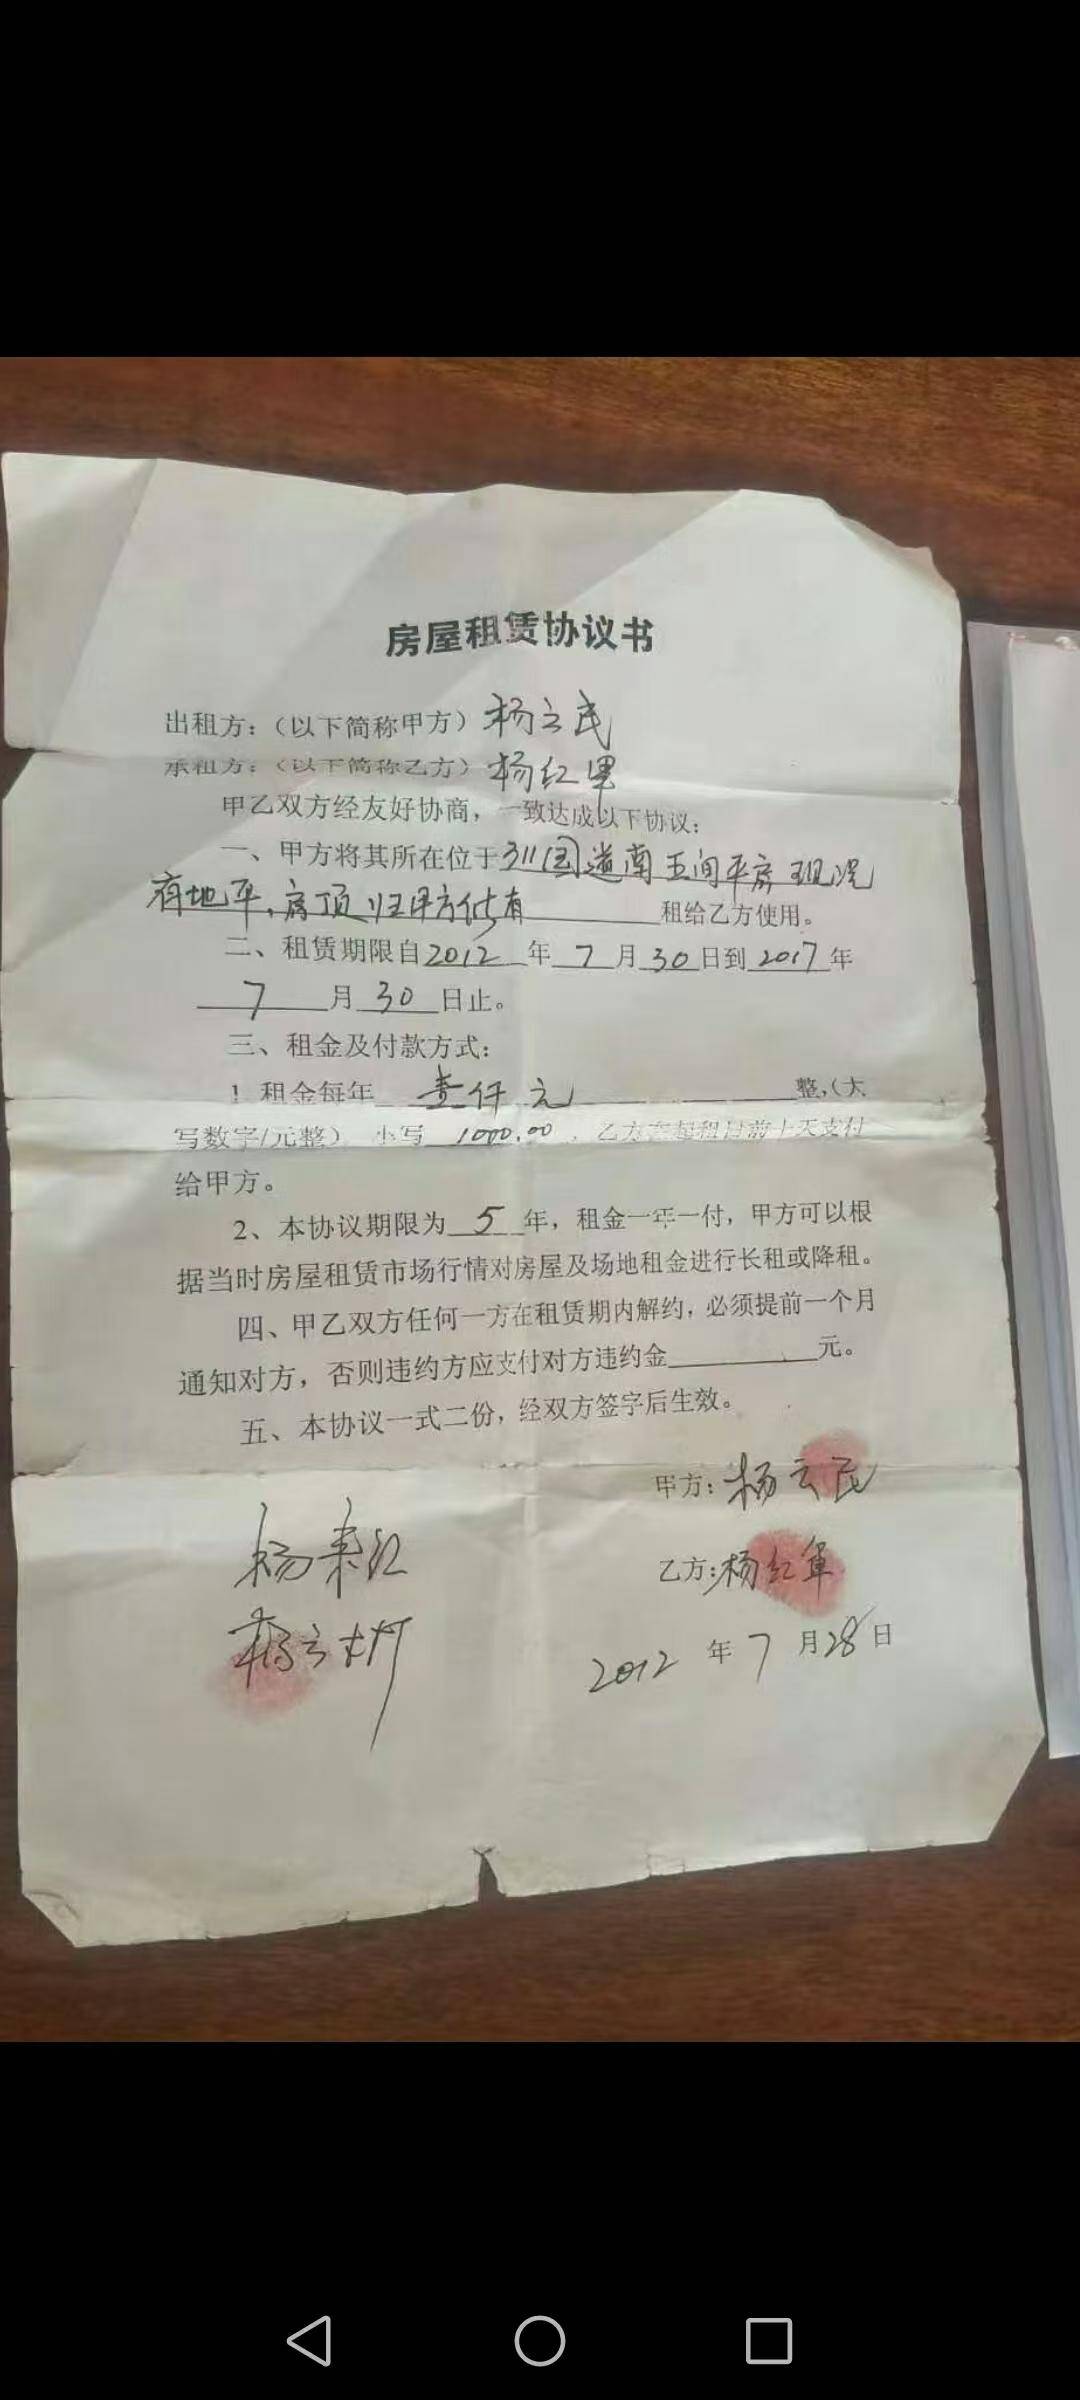 房屋租赁协议书
出租方：（以下简称甲方）杨云民
承租方：（以下简称乙方）杨红军
甲乙双方经友好协商，一致达成以下协议：
一、甲方将其所在位于311国道南五间平房现况
有地平，房顶归甲方所有 租给乙方使用。
二、租赁期限自2012年7月30日到2017年
7月30日止。
三、租金及付款方式：
1 租金每年 壹仟元 整，（大
写数字/元整） 小写 1000.00 ，乙方在起租日前十天支付
给甲方。
2、本协议期限为5年，租金一年一付，甲方可以根
据当时房屋租赁市场行情对房屋及场地租金进行长租或降租。
四、甲乙双方任何一方在租赁期内解约，必须提前一个月
通知对方，否则违约方应支付对方违约金______元。
五、本协议一式二份，经双方签字后生效。
甲方：杨云民
乙方：杨红军
2012年7月28日